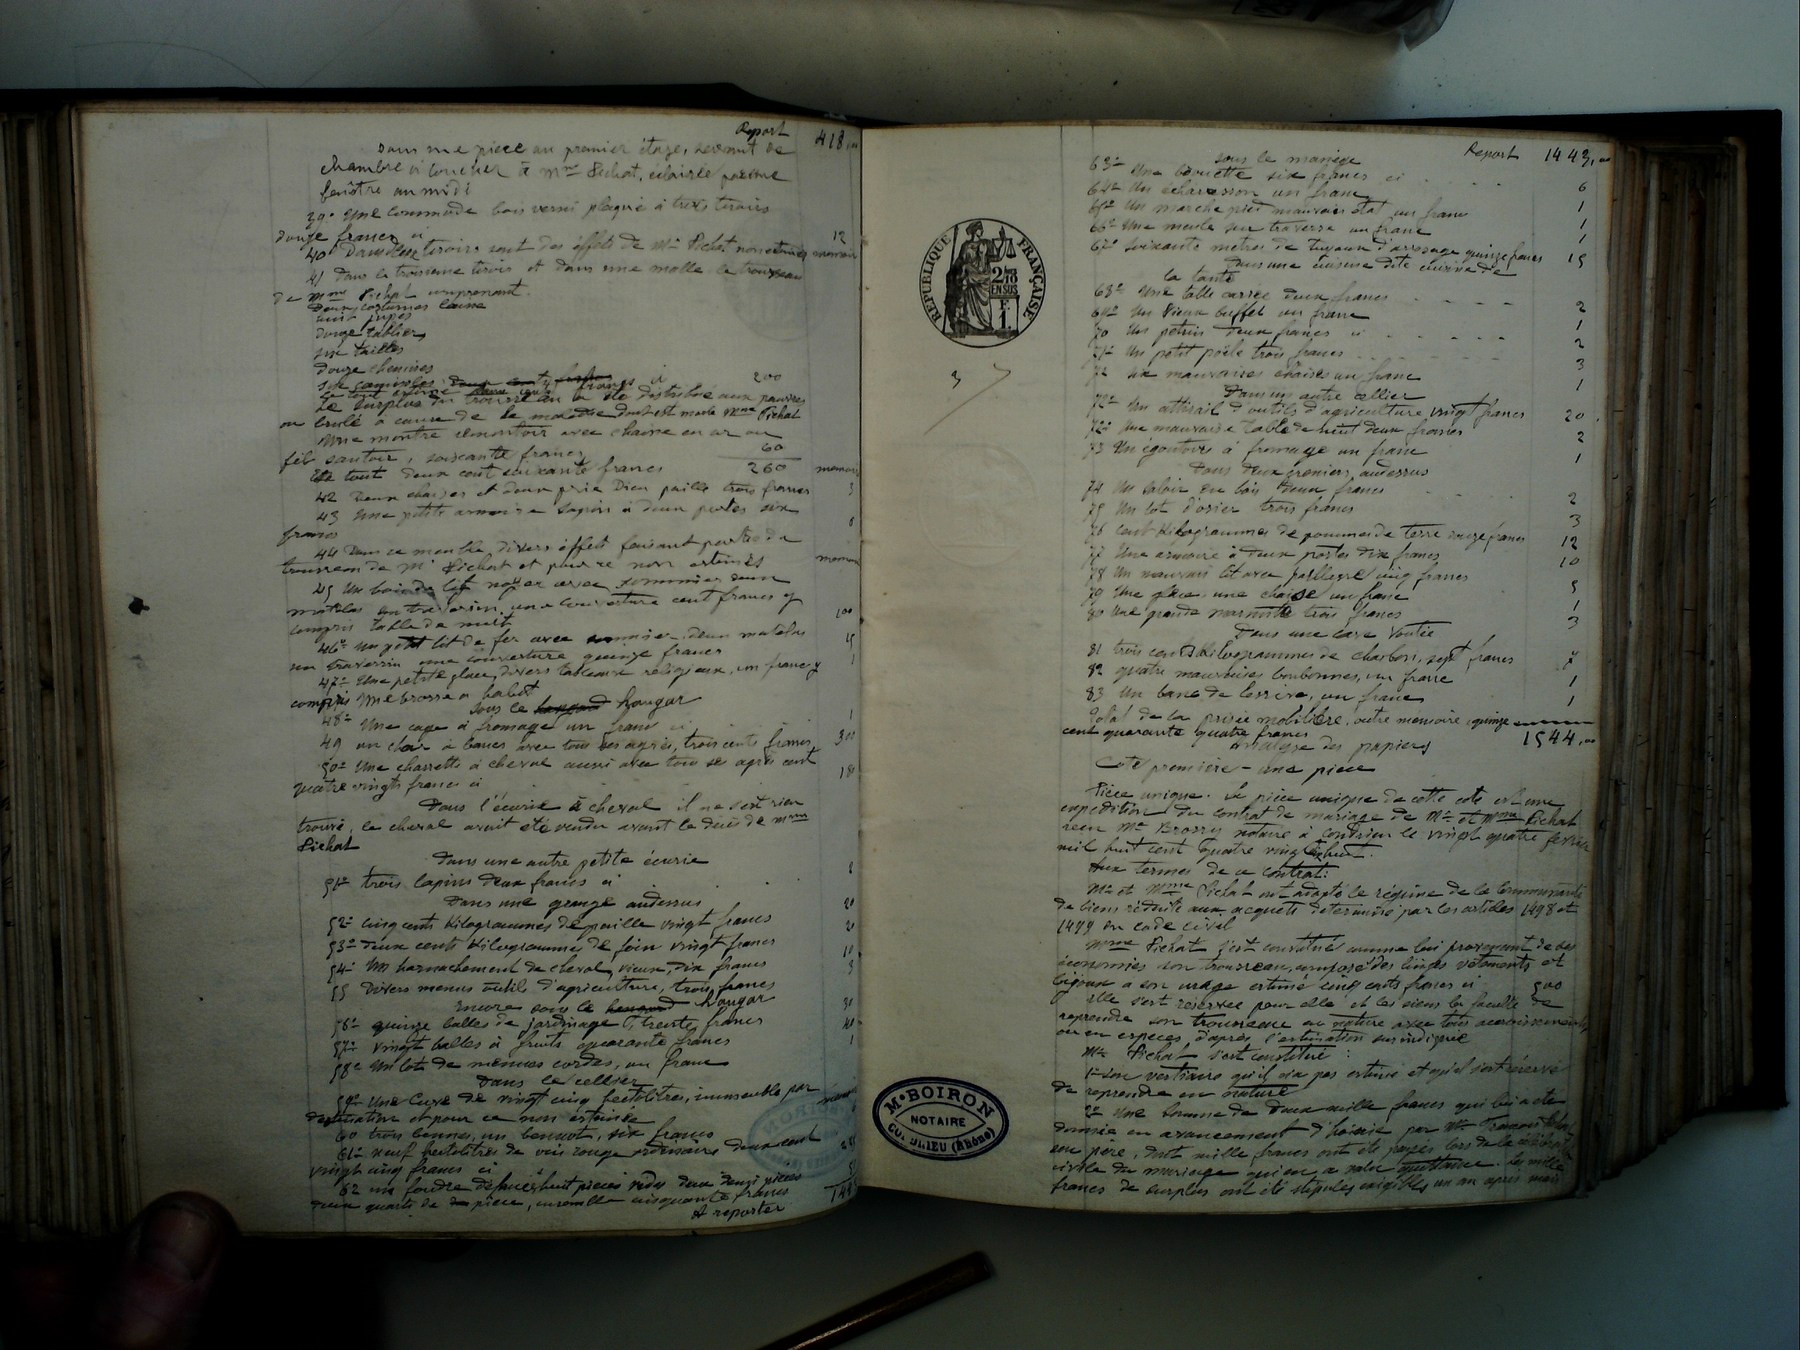 Report 418,00
Dans une pièce au premier étage, servant de
chambre à coucher à Mme Pichat, éclairée par une
fenêtre au midi
39° Une commode bois verni plaqué à trois tiroirs
douze francs ci 12
40 Dans deux tiroirs sont des effets de Mr Pichat non estimés memoire
41 Dans le troisième tiroir et dans une malle le trousseau
de Mme Pichat comprenant.
Deux costumes laine
huit jupes
douze tabliers
six tailles
douze chemises
six camisoles
Le tout estimé francs ci 200
Le surplus du trousseau a été distribué aux pauvres
ou brulé à cause de la maladie dont est morte Mme Pichat
Une montre remontoir avec chaine en or ou
sautoir, soixante francs 60
Le tout deux cent soixante francs 260 memoire
42 Deux chaises et deux prie Dieu paille trois francs 3
43 Une petite armoire sapin à deux portes six
francs 6
44 Dans ce meuble, divers effets faisant partie du
trousseau de Mr Pichat et pour ce non estimés memoire
45 Un bois de lit noyer avec sommier deux
matelas un traversin, une couverture cent francs y
compris table de nuit 100
46° Un petit lit de fer avec sommier, deux matelas
un traversin une couverture quinze francs 15
47° Une petite glace, divers tableaux religieux, un franc y
compris une brosse à habit 1
Sous le hangard hangar
48° Une cage à fromage un franc ci 1
49 un char à bancs avec tous ses agrès, trois cents francs 300
50° Une charrette à cheval aussi avec tous ses agrès cent
quatre vingts francs ci 180
Dans l'écurie à cheval il ne s'est rien
trouvé, le cheval avait été vendu avant le décès de Mme
Pichat
Dans une autre petite écurie
51° trois lapins deux francs ci 2
Dans une grange audessus
52° cinq cents Kilogrammes de paille vingt francs 20
53° deux cents Kilogrammes de foin vingt francs 20
54° Un harnachement de cheval, vieux, dix francs 10
55 Divers menus outils d'agriculture, trois francs 3
Encore sous le hangard hangar
56° quinze balles de jardinage, trente francs 30
57° vingt balles à fruits quarante francs 40
58° Un lot de menues cordes, un franc 1
Dans le cellier
59° Une cuve de vingt cinq hectolitres, immeuble par
destination et pour ce non estimée
60 trois bennes, un bennot, six francs
61° neuf hectolitres de vin rouge ordinaire deux cent
vingt cinq francs ci
62 un foudre de huit pièces vides deux demi pièces
deux quarts de pièce, ensemble cinquante francs
A reporter
Report 1443,00
sous le manège
63° Une brouette six francs ci 6
64° Un un franc 1
65° Un marche pied mauvais état un franc 1
66° Une meule sur traverse un franc 1
67° soixante mètres de tuyaux d'arrosage quinze francs 15
Dans une cuisine dite cuisine de
la tante
68° Une table carrée deux francs 2
69° Un vieux buffet un franc 1
70 Un pétrin deux francs ci 2
71° Un petit poêle trois francs 3
72 six mauvaises chaises un franc 1
Dans un autre cellier
72° Un attirail d'outils d'agriculture vingt francs 20
72° Une mauvaise table de nuit deux francs 2
73 Un égouttoir à fromage un franc 1
Dans deux greniers audessus
74 Un saloir en bois deux francs 2
75 Un lot d'osier trois francs 3
76 cent Kilogrammes de pommes de terre douze francs 12
77 Une armoire à deux portes dix francs 10
78 Un mauvais lit avec paillasse cinq francs 5
79 Une glace une chaise un franc 1
80 Une grande marmite trois francs 3
Dans une cave voutée
81 trois cents Kilogrammes de charbon, sept francs 7
82 quatre mauvaises bonbonnes, un franc 1
83 Un banc de lessive, un franc 1
Total de la prisée mobilière, outre memoire, quinze
cent quarante quatre francs 1544,00
Analyse des papiers
Cote première - une pièce
Pièce unique. La pièce unique de cette cote est une
expédition du contrat de mariage de Mr et Mme Pichat
reçu Me Brossy notaire à Condrieu le vingt quatre février
mil huit cent quatre vingt huit.
Aux termes de ce contrat:
Mr et Mme Pichat ont adopté le régime de la Communauté
de biens réduite aux acquêts déterminé par les articles 1498 et
1499 du code civil
Mme Pichat s'est constitué comme lui provenant de ses
économies son trousseau, composé des linges vêtements et
bijoux à son usage estimé cinq cents francs ci 500
Elle s'est réservée pour elle et les siens la faculté de
reprendre son trousseau en nature avec tous accroissements
ou en espèces, d'après l'estimation sus indiquée
Mr Pichat s'est constitué :
1° son vestiaire qu'il n'a pas estimé et qu'il s'est réservé
de reprendre en nature
2° Une somme de deux mille francs qui lui a été
donnée en avancement d'hoirie par Mr François Pichat
son père, dont mille francs ont été payés lors de la célébration
civile du mariage qui en a valu quittance. Les mille
francs de surplus ont été stipulés exigibles un an après mais
RÉPUBLIQUE FRANÇAISE
2/10
EN SUS
F
1
3
Me BOIRON
NOTAIRE
CONDRIEU (Rhône)